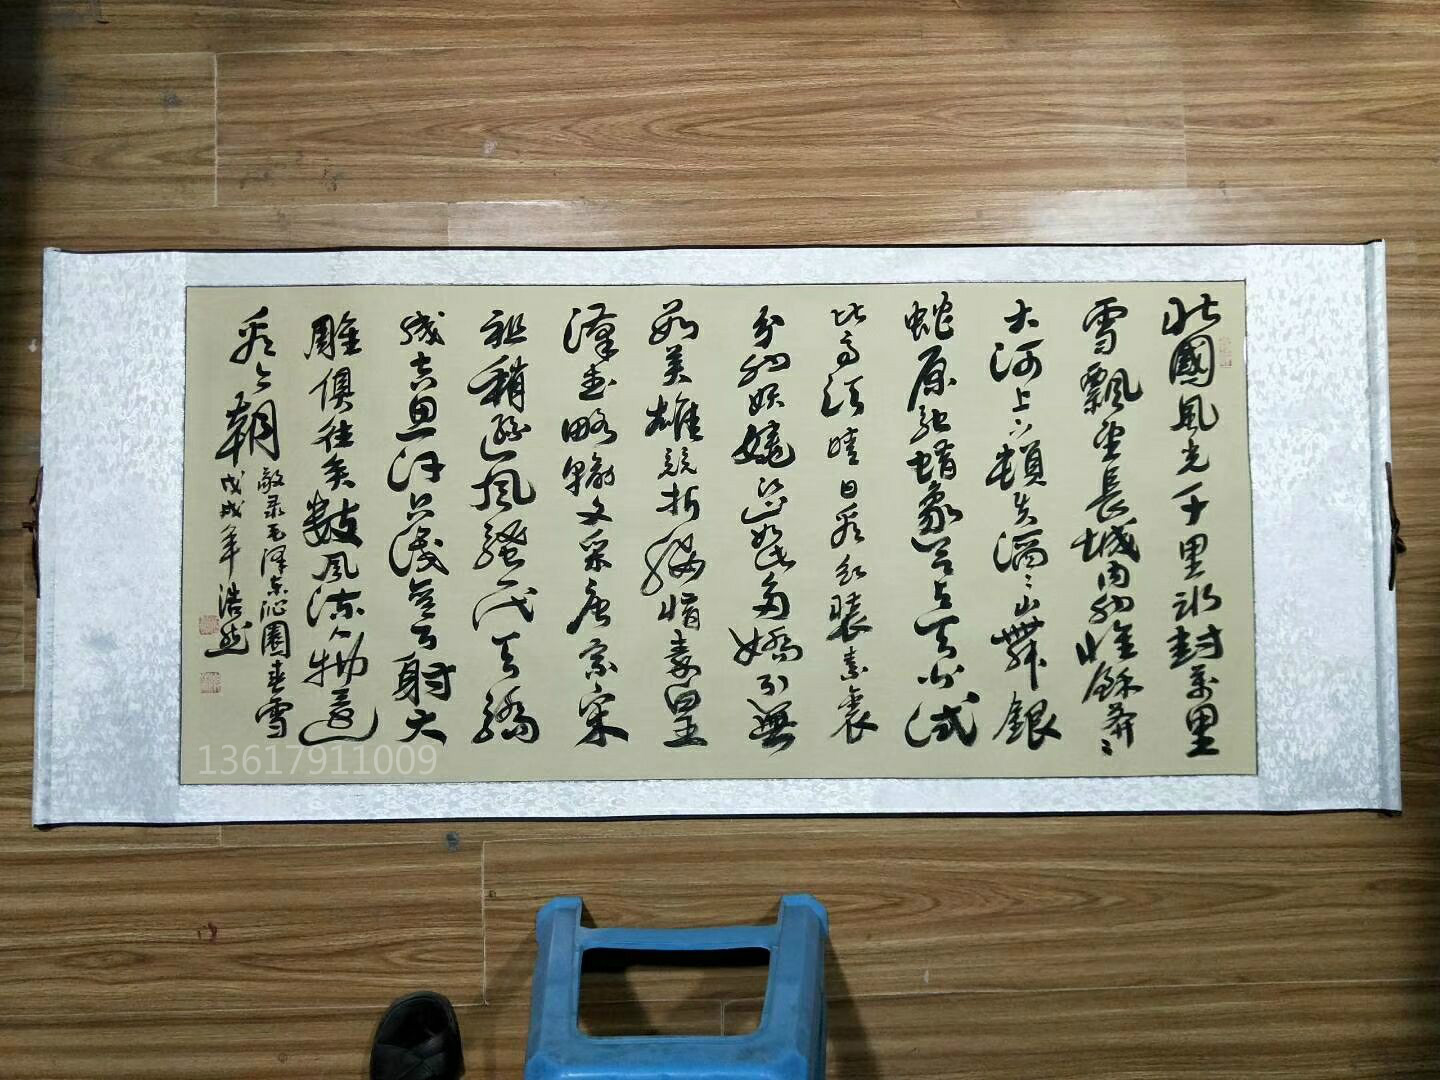 北國風光千里冰封萬里
雪飄望長城内外惟餘莽々
大河上下頓失滔々山舞銀
蛇原馳蜡象欲与天公试
比高须晴日看红装素裹
分外妖嬈江山如此多嬌引無
數英雄競折腰惜秦皇
漢武略輸文采唐宗宋
祖稍逊風騷一代天驕
成吉思汗只識彎弓射大
雕俱往矣數風流人物還
看今朝
敬录毛泽东沁園春雪
戊戌年浩然
13617911009